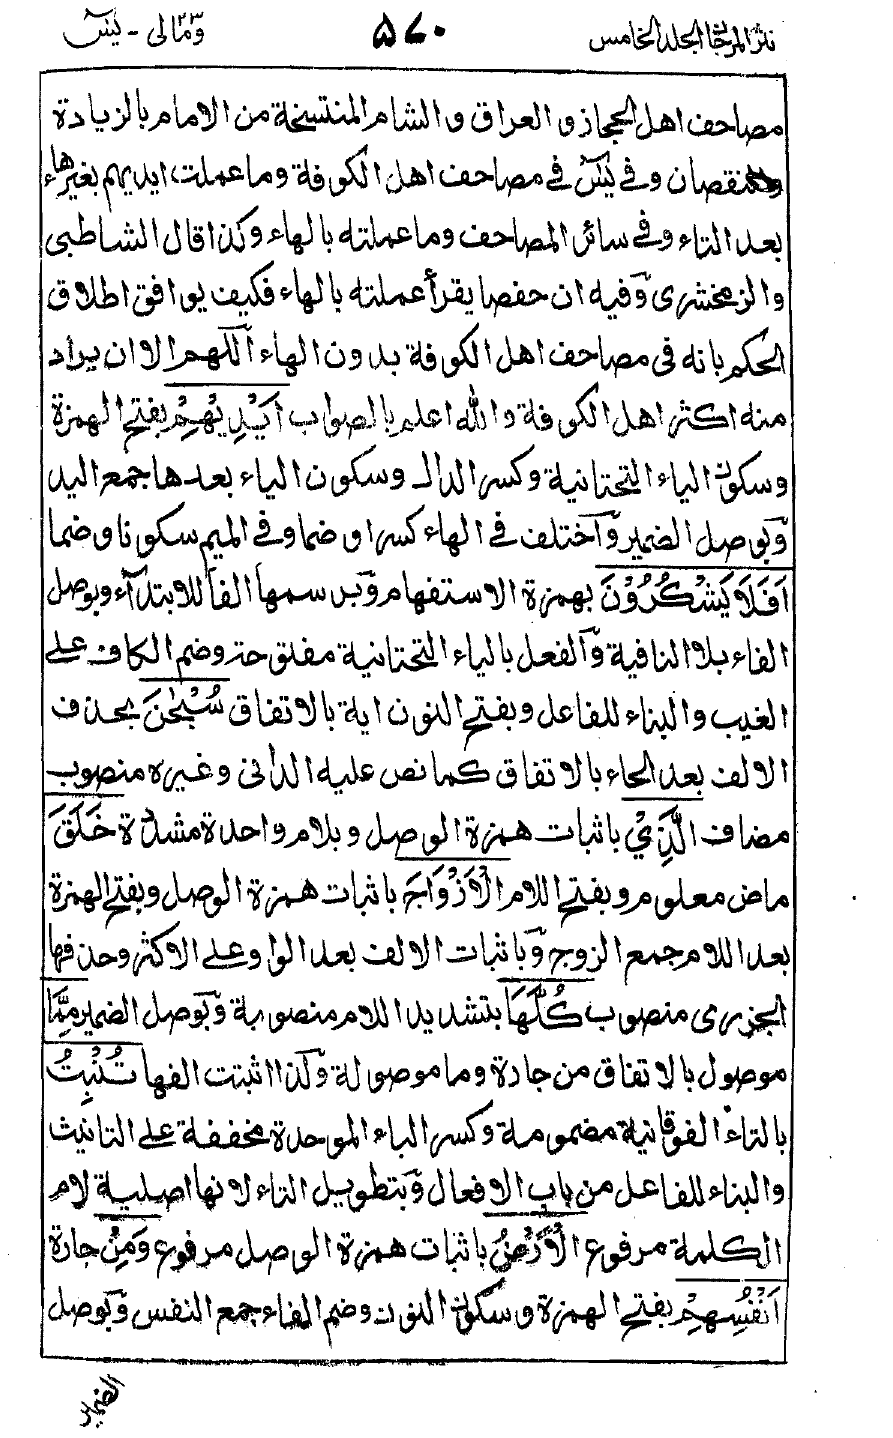 نثر المرجان الجلد الخامس ۵۷۰ وَمَالی - یٰسٓ
مصاحف اهل الحجاز و العراق و الشام المنتسخة من الامام بالزيادة
والنقصان وفي يٰسٓ في مصاحف اهل الكوفة وما عملت ايديهم بغير هاء
بعد التاء وفي سائر المصاحف وما عملته بالهاء وكذا قال الشاطبي
والزمخشرى وَفيه ان حفصا يقرأ عملته بالهاء فكيف يوافق اطلاق
الحكم بانه فى مصاحف اهل الكوفة بدون الهاء اَللّهم الا ان يراد
منه اكثر اهل الكوفة والله اعلم بالصواب اَيْدِيْهِمْ بفتح الهمزة
وسكون الياء التحتانية وكسر الدال وسكون الياء بعدها جمع اليد
وَبوصل الضمير وَاختلف في الهاء كسرا وضما وفي الميم سكونا وضما
اَفَلَا يَشْكُرُوْنَ بهمزة الاستفهام وَبرسمها الفا للابتدآء وبوصل
الفاء بلا النافية وَالفعل بالياء التحتانية مفتوحة وضم الكاف على
الغيب والبناء للفاعل وبفتح النون اية بالاتفاق سُبْحٰنَ بحذف
الالف بعد الحاء بالاتفاق كما نص عليه الدانى وغيره منصوب
مضاف الَّذِيْ باثبات همزة الوصل وبلام واحدة مشدّدة خَلَقَ
ماض معلوم وبفتح اللام الْاَزْوَاجَ باثبات همزة الوصل وبفتح الهمزة
بعد اللام جمع الزوج وَباثبات الالف بعد الواو على الاكثر وحذفها
الجزرى منصوب كُلَّهَا بتشديد اللام منصوبة وَبوصل الضمير مِمَّا
موصول بالاتفاق من جارة وما موصولة وَلذا اثبتت الفها تُنْبِتُ
بالتاء الفوقانية مضمومة وكسر الباء الموحدة مخففة على التانيث
والبناء للفاعل من باب الافعال وَبتطويل التاء لانها اصلية لام
الكلمة مرفوع الْاَرْضُ باثبات همزة الوصل مرفوع وَمِنْ جارة
اَنْفُسِهِمْ بفتح الهمزة وسكون النون وضم الفاء جمع النفس وَبوصل
الضمير